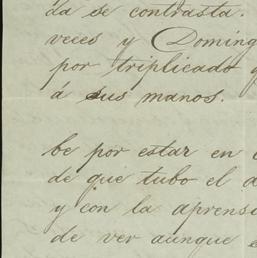 da se contrasta.
veces y Doming
por triplicado q
á sus manos.
be por estar en
de que tubo el a
y con la aprensi
de ver aunque e